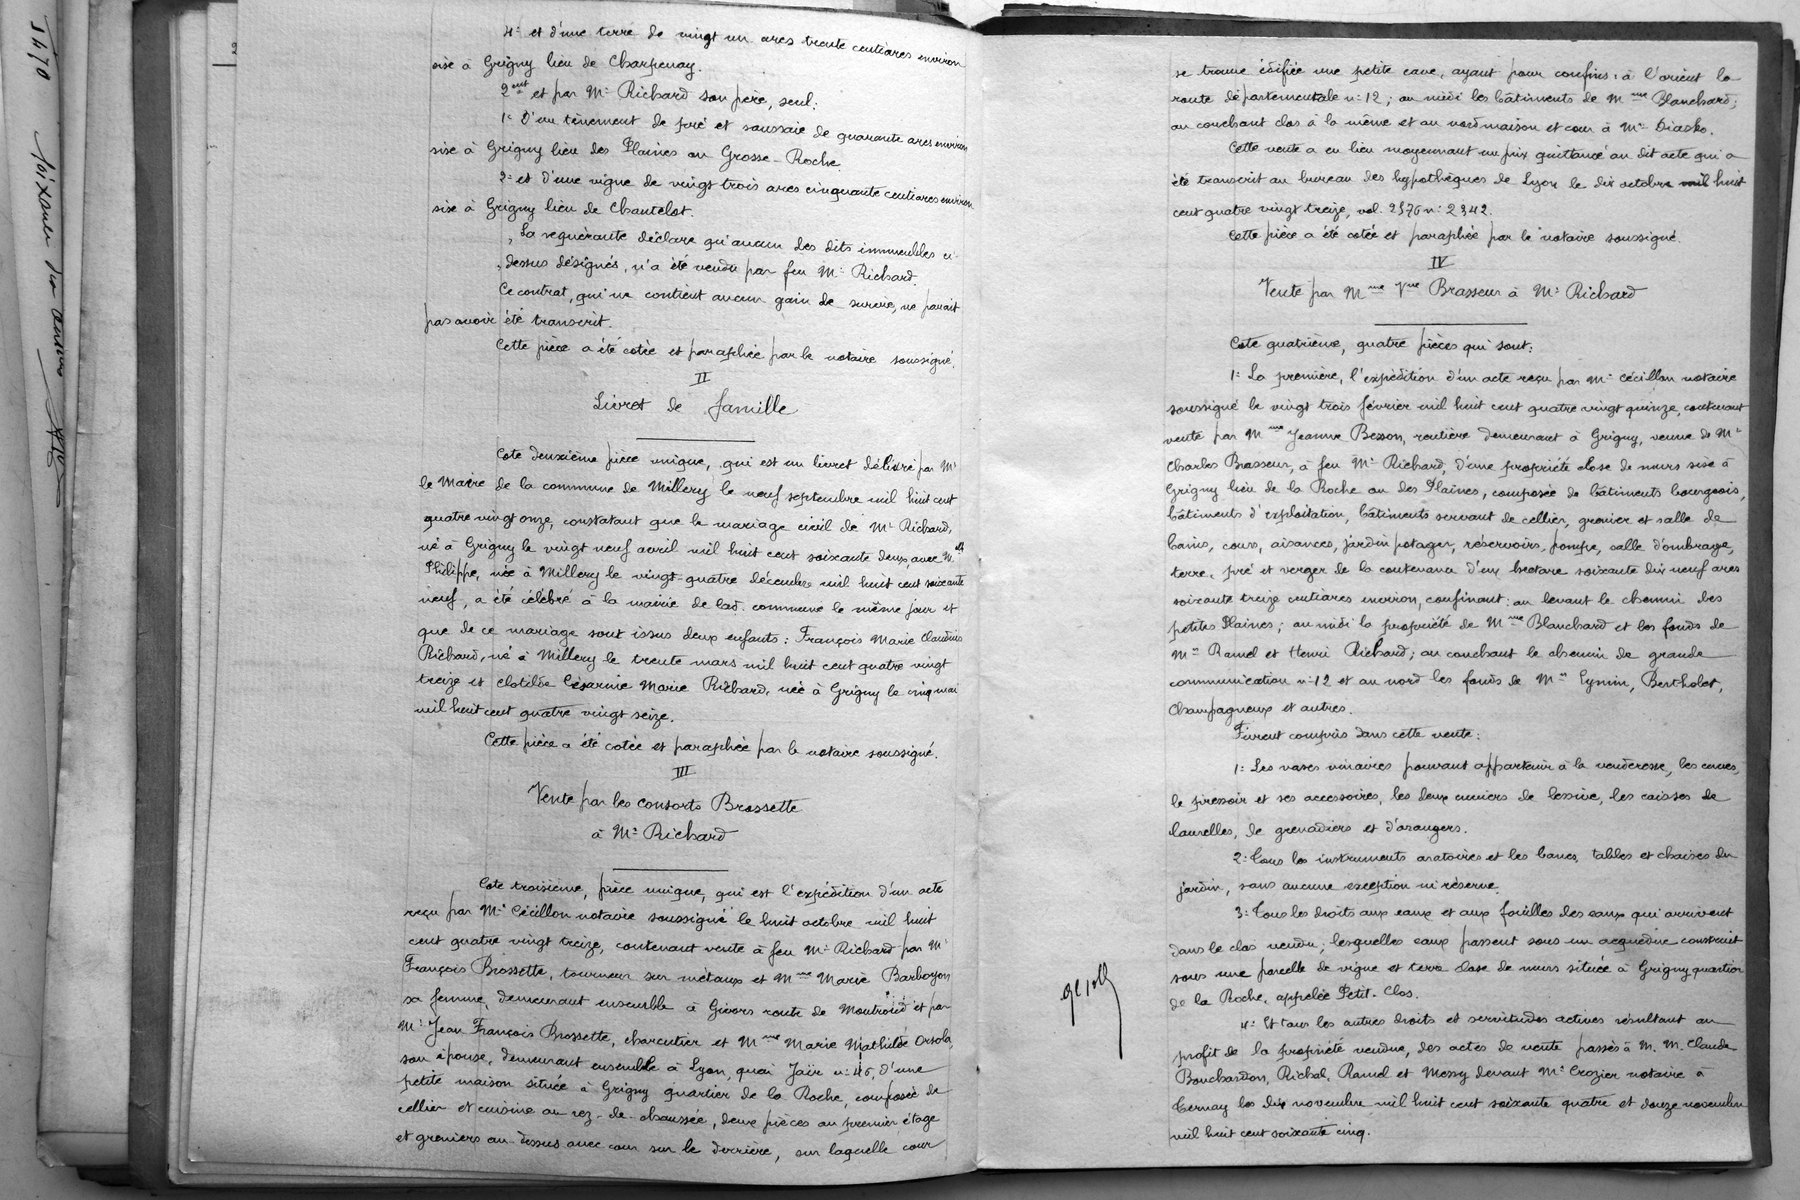 4° et d'une terre de vingt un ares trente centiares environ
sise à Grigny lieu de Charpenay.
2ent et par Mr Richard son père, seul:
1° D'un tènement de pré et saussaie de quarante ares environ
sise à Grigny lieu des Plaines ou Grosse-Roche
2° et d'une vigne de vingt trois ares cinquante centiares environ
sise à Grigny lieu de Chantelot.
La requérante déclare qu'aucun des dits immeubles ci
dessus désignés, n'a été vendu par feu Mr Richard.
Ce contrat, qui ne contient aucun gain de survie, ne parait
pas avoir été transcrit.
Cette pièce a été cotée et paraphée par le notaire soussigné.
II
Livret de famille
Cote deuxième pièce unique, qui est un livret délivré par Mr
le Maire de la commune de Millery le neuf septembre mil huit cent
quatre vingt onze, constatant que le mariage civil de Mr Richard,
né à Grigny le vingt neuf avril mil huit cent soixante deux avec Melle
Philippe, née à Millery le vingt-quatre décembre mil huit cent soixante
neuf, a été célébré à la mairie de lad. commune le même jour et
que de ce mariage sont issus deux enfants: François Marie Claudius
Richard, né à Millery le trente mars mil huit cent quatre vingt
treize et Clotilde Césarine Marie Richard, née à Grigny le cinq mai
mil huit cent quatre vingt seize.
Cette pièce a été cotée et paraphée par le notaire soussigné.
III
Vente par les consorts Brossette
à Mr Richard
Cote troisième, pièce unique, qui est l'expédition d'un acte
reçu par Me Cécillon notaire soussigné le huit octobre mil huit
cent quatre vingt treize, contenant vente à feu Mr Richard par Mr
François Brossette, tourneur sur métaux et Mme Marie Barboyon
sa femme, demeurant ensemble à Givors route de Montrond et par
Mr Jean François Brossette, charcutier et Mme Marie Mathilde Orsola,
son épouse, demeurant ensemble à Lyon, quai Jaïr n° 46, d'une
petite maison située à Grigny quartier de la Roche, composée de
cellier et cuisine au rez-de-chaussée, deux pièces au premier étage
et greniers au-dessus avec cour sur le derrière, sur laquelle cour
se trouve édifiée une petite cave, ayant pour confins: à l'orient la
route départementale n° 12; au midi les bâtiments de Mme Blanchard;
au couchant clos à la même et au nord maison et cour à Mr Diasko.
Cette vente a eu lieu moyennant un prix quittancé au dit acte qui a
été transcrit au bureau des hypothèques de Lyon le dix octobre mil huit
cent quatre vingt treize, vol. 2576 n° 2342.
Cette pièce a été cotée et paraphée par le notaire soussigné.
IV
Vente par Mme Vve Brasseur à Mr Richard
Cote quatrième, quatre pièces qui sont:
1° La première, l'expédition d'un acte reçu par Me Cécillon notaire
soussigné le vingt trois février mil huit cent quatre vingt quinze, contenant
vente par Mme Jeanne Besson, rentière demeurant à Grigny, veuve de Mr
Charles Brasseur, à feu Mr Richard, d'une propriété close de murs sise à
Grigny lieu de la Roche ou des Plaines, composée de bâtiments bourgeois,
bâtiments d'exploitation, bâtiments servant de cellier, grenier et salle de
bains, cours, aisances, jardin potager, réservoirs, pompe, salle d'ombrage,
terre, pré et verger de la contenance d'un hectare soixante dix neuf ares
soixante treize centiares environ, confinant: au levant le chemin des
petites Plaines; au midi la propriété de Mme Blanchard et les fonds de
Mrs Ramel et Henri Richard; au couchant le chemin de grande
communication n° 12 et au nord les fonds de Mrs Eymin, Bertholet,
Champagneux et autres.
Furent compris dans cette vente:
1° Les vases vinaires pouvant appartenir à la venderesse, les cuves,
le pressoir et ses accessoires, les deux cuviers de lessive, les caisses de
laurelles, de grenadiers et d'orangers.
2° Tous les instruments aratoires et les bancs, tables et chaises du
jardin, sans aucune exception ni réserve.
3° Tous les droits aux eaux et aux fouilles des eaux qui arrivent
dans le clos vendu, lesquelles eaux passent sous un acqueduc construit
sous une parcelle de vigne et terre close de murs située à Grigny quartier
de la Roche, appelée Petit-Clos.
4° Et tous les autres droits et servitudes actives résultant au
profit de la propriété vendue, des actes de vente passés à M. M. Claude
Bouchardon, Richal, Ramel et Messy devant Me Crozier notaire à
Ternay les dix novembre mil huit cent soixante quatre et douze novembre
mil huit cent soixante cinq.